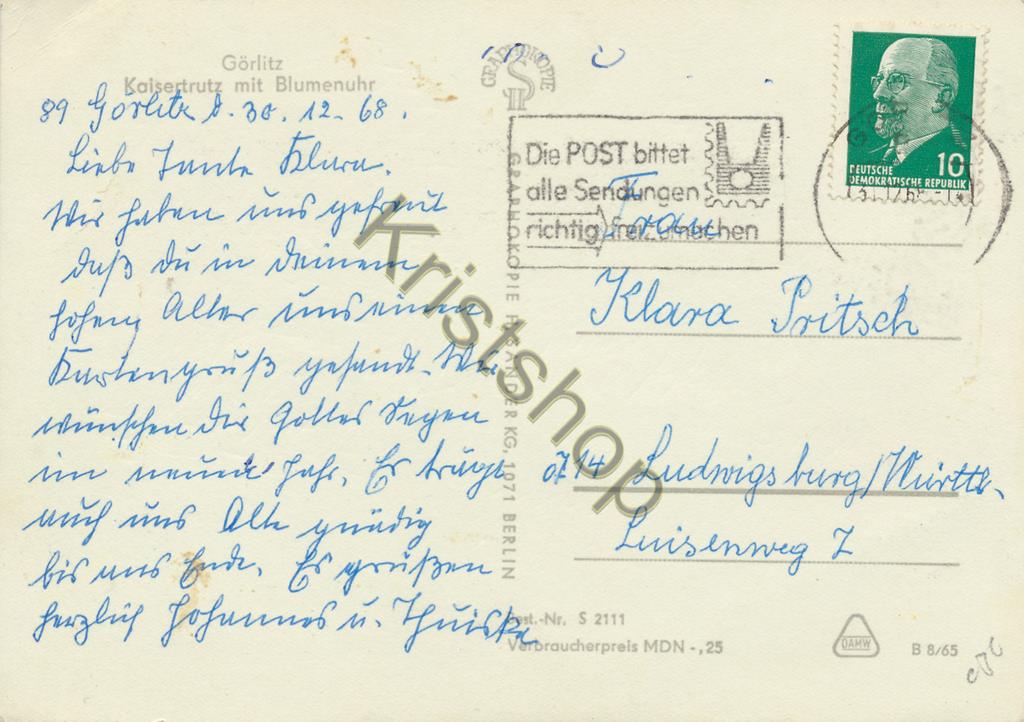 Görlitz
Kaisertrutz mit Blumenuhr
89 Görlitz d. 30. 12. 68.
Liebe Tante Klara.
Wir haben uns gefreut
daß du in deinem
hohen Alter uns einen
Kartengruß gesandt. Wir
wünschen dir Gottes Segen
im neuen Jahr. Er trägt
auch uns Alte gnädig
bis ans Ende. Es grüßen
herzlich Johannes u.
GRAPHOKOPIE
GRAPHOKOPIE H. SANDER KG, 1071 BERLIN
Die POST bittet
alle Sendungen
richtig freizumachen
10
DEUTSCHE
DEMOKRATISCHE REPUBLIK
Frau
Klara Pritsch
714 Ludwigsburg/Württb.
Luisenweg 7
Best.-Nr. S 2111
Verbraucherpreis MDN -,25
DAMW
B 8/65
Kristshop